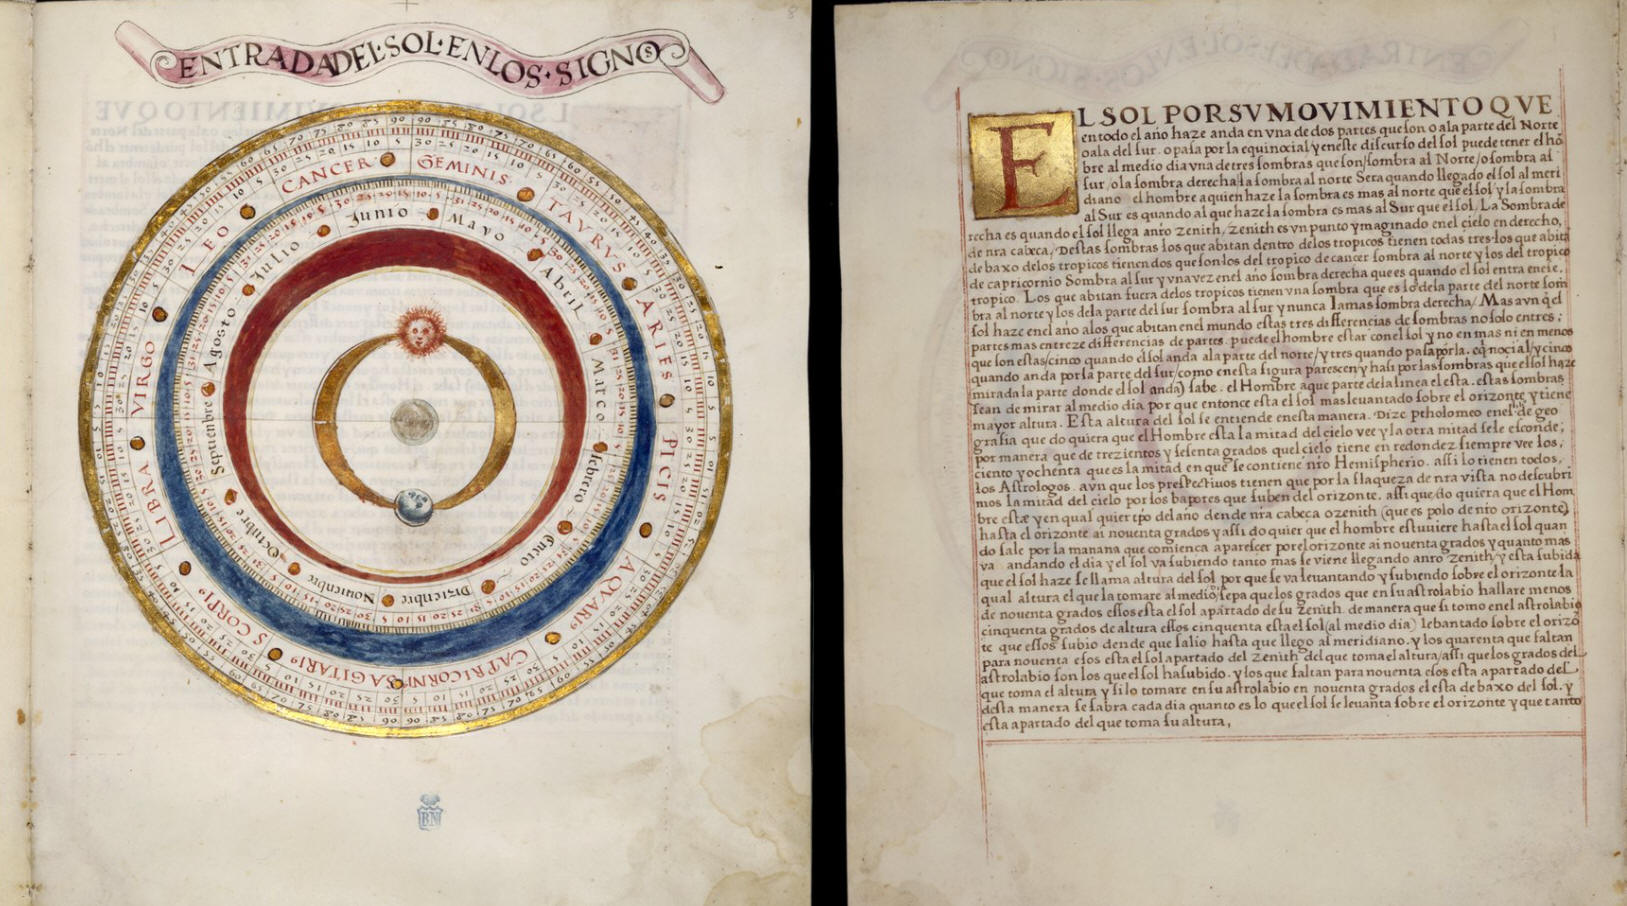 ENTRADA DEL·SOL·EN LOS·SIGNOS
CANCER
GEMINIS
TAVRVS
ARIES
PICIS
AQVARI9
CAPRICORNI9
SAGITARI9
SCORPI9
LIBRA
VIRGO
LEO
Junio
Mayo
Abril
Março
febrero
Enero
Diziembre
Nouienbre
Octubre
Septienbre
Agosto
Julio
BN
EL SOL POR SV MOVIMIENTO QVE
en todo el año haze anda en vna de dos partes que son o ala parte del Norte
o ala del sur. o pasa por la equinocial/ y en este discurso del sol puede tener el hõ
bre al medio dia vna de tres sombras que son/sombra al Norte/o sombra al
sur/o la sombra derecha/la sombra al norte Sera quando llegado el sol al meri
diano el hombre a quien haze la sombra es mas al norte que el sol y la sombra
al Sur es quando al que haze la sombra es mas al Sur que el sol/La Sombra de
recha es quando el sol llega a nr̃o zenith/zenith es vn punto ymaginado en el cielo en derecho,
de nr̃a cabeça/Destas sombras los que abitan dentro delos tropicos tienen todas tres·los que abitã
de baxo delos tropicos tienen dos que son los del tropico de cancer sombra al norte y los del tropico
de capricornio Sombra al sur y vna vez en el año sombra derecha que es quando el sol entra en ese.
tropico. Los que abitan fuera delos tropicos tienen vna sombra que es lo dela parte del norte som
bra al norte y los dela parte del sur sombra al sur y nunca Iamas sombra derecha/Mas avn q̃ el
sol haze en el año alos que abitan en el mundo estas tres differencias de sombras no solo en tres;
partes mas en treze differencias de partes. puede el hombre estar con el sol y no en mas ni en menos
que son estas/cinco quando el sol anda ala parte del norte/y tres quando pasa por la. eq̃nocial/y cinco
quando anda por la parte del sur/como en esta figura parescen y hasi por las sombras que el sol haze
mirada la parte donde el sol anda) sabe. el Hombre a que parte dela linea el esta. estas sombras
sean de mirar al medio dia por que entonce esta el sol mas leuantado sobre el orizonte y tiene
mayor altura. Esta altura del sol se entiende en esta manera. Dize ptholomeo en el de geo
grafia que do quiera que el Hombre esta la mitad del cielo vee y la otra mitad se le esconde;
por manera que de trezientos y sesenta grados que el cielo tiene en redondez siempre vee los,
ciento y ochenta que es la mitad en que se contiene nr̃o Hemispherio. assi lo tienen todos,
los Astrologos. avn que los prespectiuos tienen que por la flaqueza de nr̃a vista no descubri
mos la mitad del cielo por los bapores que suben del orizonte. assi que do quiera que el Hom
bre este y en qual quier tpo del año dende nr̃a cabeça o zenith (que es polo de nr̃o orizonte)
hasta el orizonte ai nouenta grados y assi do quier que el hombre estuuiere hasta el sol quan
do sale por la mañana que comiença aparescer por el orizonte ai nouenta grados y quanto mas
va andando el dia y el sol va subiendo tanto mas se viene llegando a nr̃o zenith/y esta subida
que el sol haze se llama altura del sol por que se va leuantando y subiendo sobre el orizonte la
qual altura el que la tomare al medio sepa que los grados que en su astrolabio hallare menos
de nouenta grados essos esta el sol apartado de su Zenith. de manera que si tomo en el astrolabio
cinquenta grados de altura essos cinquenta esta el sol(al medio dia) lebantado sobre el orizõ
te que essos subio dende que salio hasta que llego al meridiano. y los quarenta que faltan
para nouenta esos esta el sol apartado del zenith del que toma el altura/assi que los grados del
astrolabio son los que el sol ha subido. y los que faltan para nouenta esos esta apartado del
que toma el altura y si lo tomare en su astrolabio en nouenta grados el esta de baxo del sol. y
desta manera se sabra cada dia quanto es lo que el sol se leuanta sobre el orizonte y que tanto
esta apartado del que toma su altura,